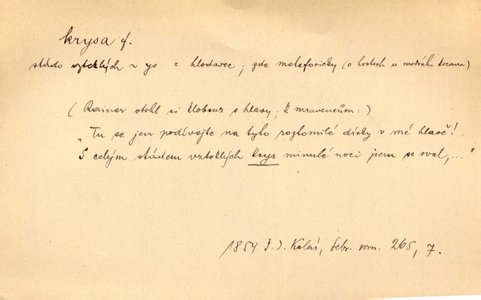 krysa f.
stádo vzteklých krys = hlodavec; zde metaforicky (o hostech u modrého
(Rainer strhl si klobouk s hlavy; k mravencům:)
„Tu se jen podívejte na tyto roztomilé důlky v mé hlavě!
S celým stádem vzteklých krys minulé noci jsem se rval,..."
1854 J. J. Kolár, Sebr. rom. 265, 7.